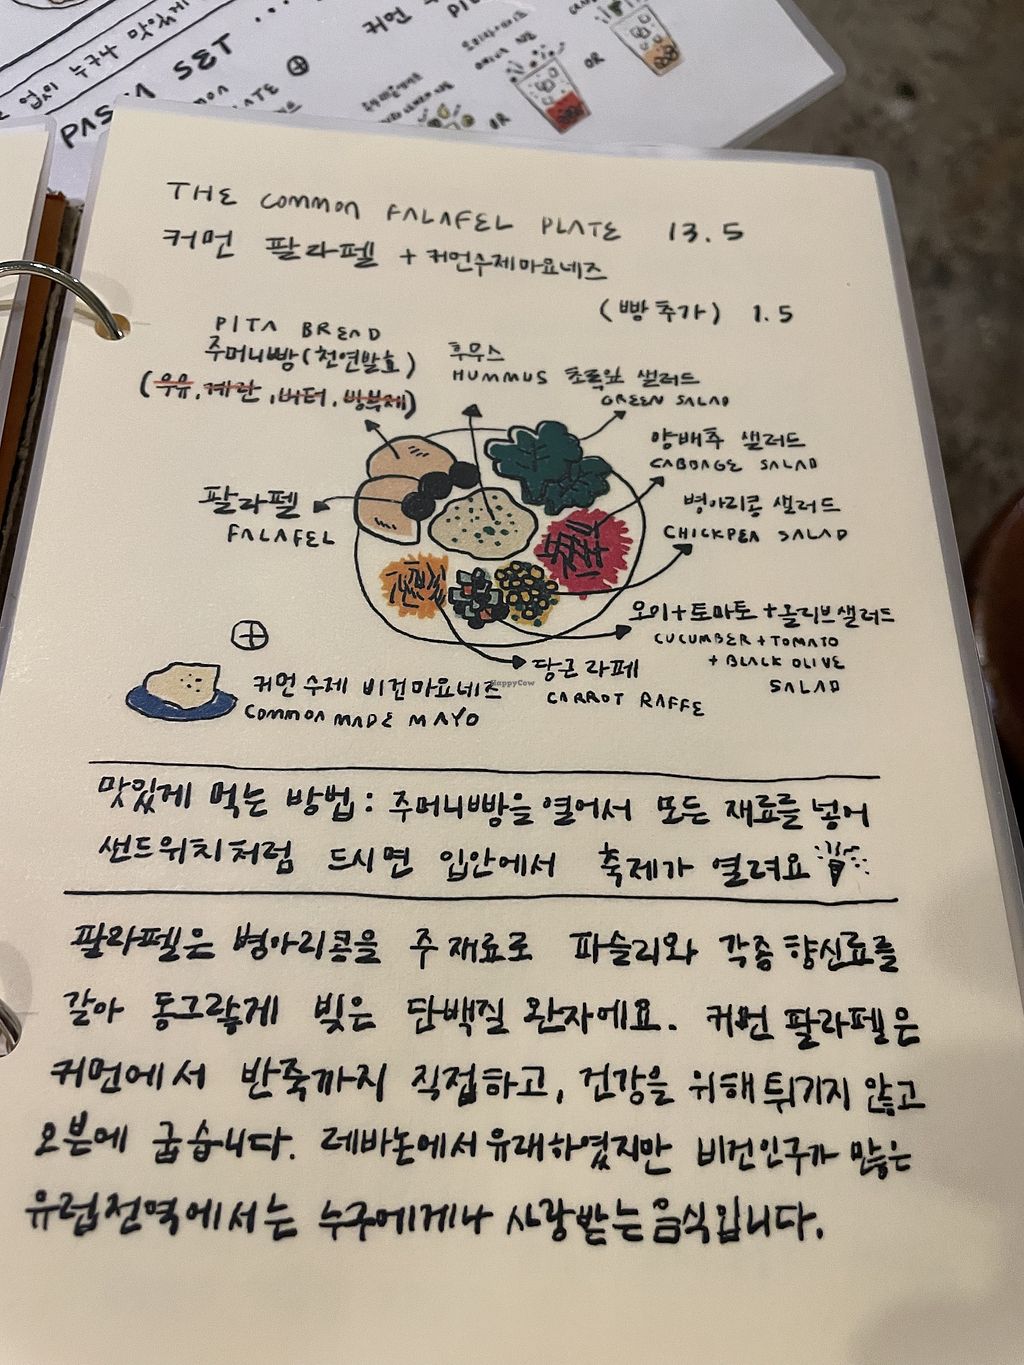 없이 누구나 맛있게
PASTA SET ....
OR
OR
THE COMMON FALAFEL PLATE 13.5
커먼 팔라펠 + 커먼수제마요네즈
(빵추가) 1.5
PITA BREAD
주머니빵(천연발효)
(우유, 계란, 버터, 방부제)
후무스
HUMMUS
초록잎 샐러드
GREEN SALAD
양배추 샐러드
CABBAGE SALAD
병아리콩 샐러드
CHICKPEA SALAD
팔라펠
FALAFEL
오이+토마토+올리브샐러드
CUCUMBER+TOMATO
+BLACK OLIVE
SALAD
당근라페
CARROT RAFFE
커먼 수제 비건마요네즈
COMMON MADE MAYO
HappyCow
맛있게 먹는 방법 : 주머니빵을 열어서 모든 재료를 넣어
샌드위치처럼 드시면 입안에서 축제가 열려요
팔라펠은 병아리콩을 주 재료로 파슬리와 각종 향신료를
갈아 동그랗게 빚은 단백질 완자에요. 커먼 팔라펠은
커먼에서 반죽까지 직접하고, 건강을 위해 튀기지 않고
오븐에 굽습니다. 레바논에서 유래하였지만 비건인구가 많은
유럽전역에서는 누구에게나 사랑받는 음식입니다.